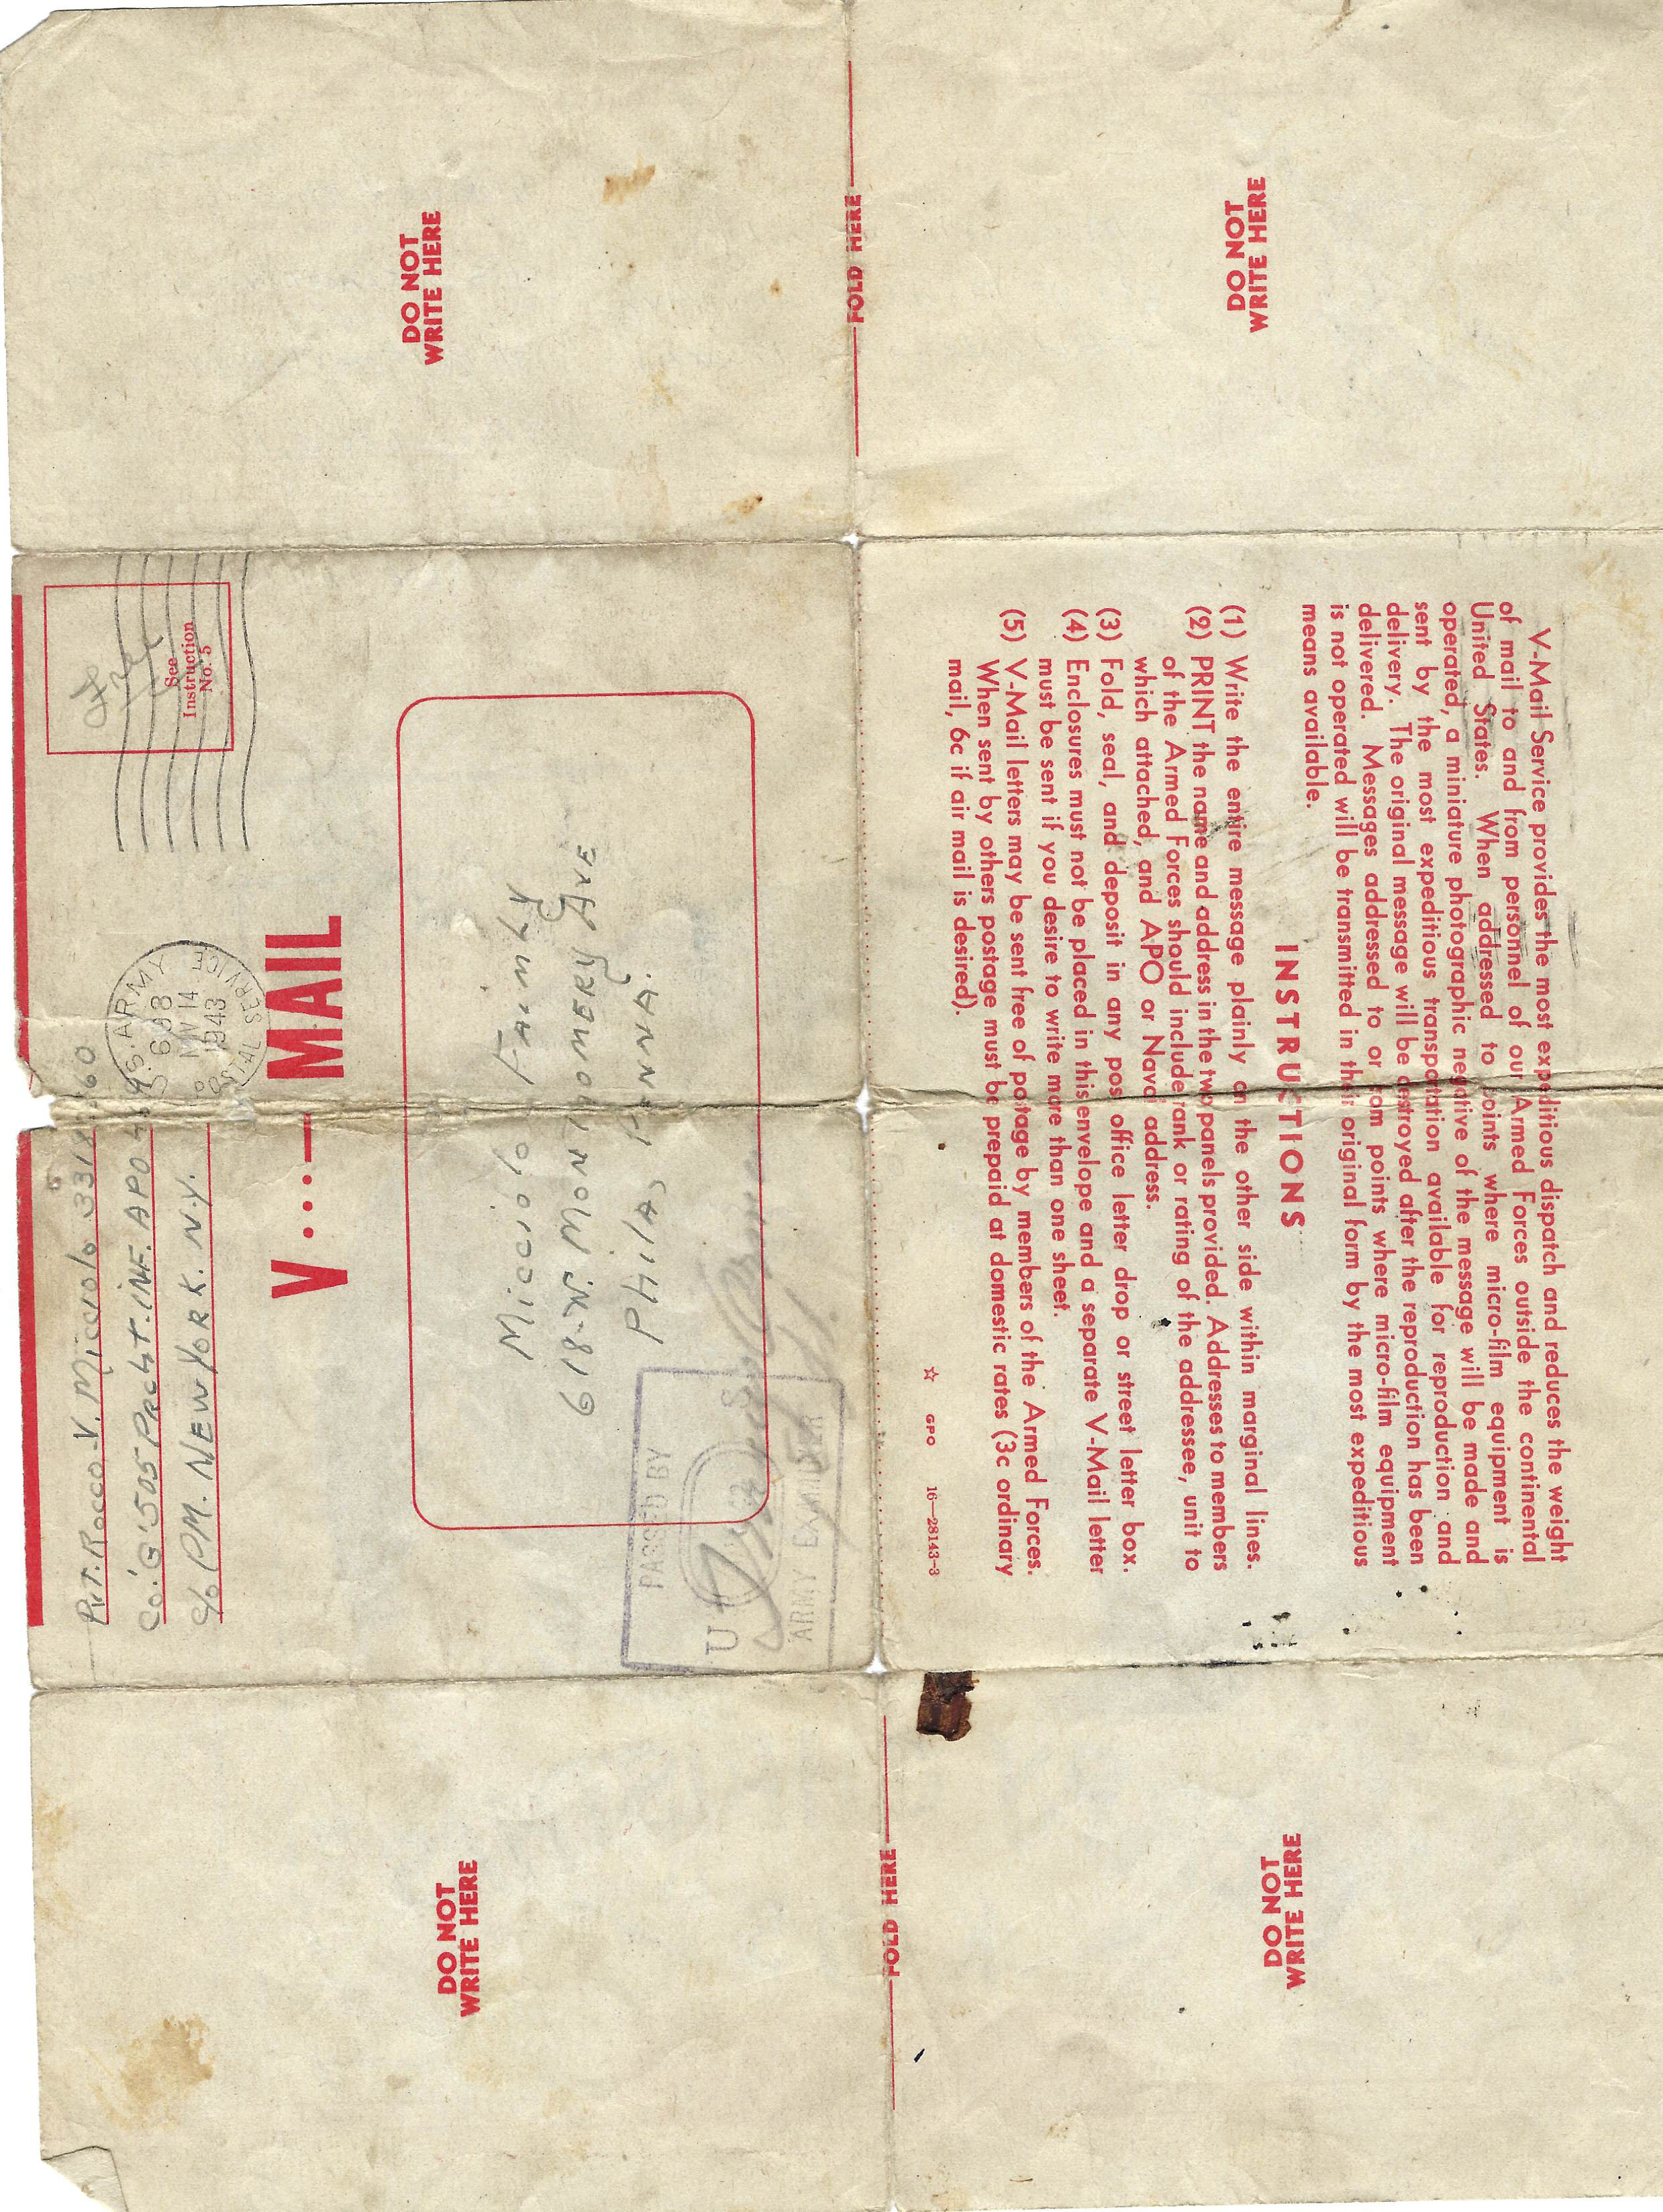 DO NOT
WRITE HERE
DO NOT
WRITE HERE
FOLD HERE
V-Mail Service provides the most expeditious dispatch and reduces the weight
of mail to and from personnel of our Armed Forces outside the continental
United States. When addressed to points where micro-film equipment is
operated, a miniature photographic negative of the message will be made and
sent by the most expeditious transportation available for reproduction and
delivery. The original message will be destroyed after the reproduction has been
delivered. Messages addressed to or from points where micro-film equipment
is not operated will be transmitted in their original form by the most expeditious
means available.
INSTRUCTIONS
(1) Write the entire message plainly on the other side within marginal lines.
(2) PRINT the name and address in the two panels provided. Addresses to members
of the Armed Forces should include rank or rating of the addressee, unit to
which attached, and APO or Naval address.
(3) Fold, seal, and deposit in any post office letter drop or street letter box.
(4) Enclosures must not be placed in this envelope and a separate V-Mail letter
must be sent if you desire to write more than one sheet.
(5) V-Mail letters may be sent free of postage by members of the Armed Forces.
When sent by others postage must be prepaid at domestic rates (3c ordinary
mail, 6c if air mail is desired).
☆ GPO 16—28143-3
Pvt. Rocco-V. Micciolo
Co. 'G' 505 Prcht. INF. APO
c/o PM. NEW YORK. N.Y.
U.S. ARMY
1943
POSTAL SERVICE
See
Instruction
No. 5
Free
V···— MAIL
Micciolo Family
618-N. MONTGOMERY AVE
PHILA, PENNA.
PASSED BY
U
ARMY EXAMINER
DO NOT
WRITE HERE
DO NOT
WRITE HERE
FOLD HERE